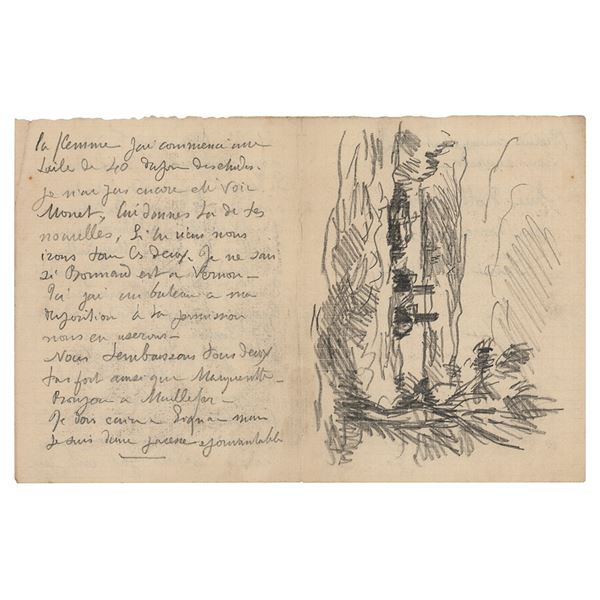 la flemme j'ai commencé une
toile de 40
Je n'ai pas encore été voir
Monet, lui donnes tu de tes
nouvelles, Si tu viens nous
irons tous les deux. Je ne sais
si Bonnard est a Vernon –
Ici j'ai un bateau a ma
disposition a ta permission
nous en userons –
Nous t'embrassons tous deux
très fort ainsi que Marguerite –
Bonjour a
Je
Je suis d'une paresse epouvantable